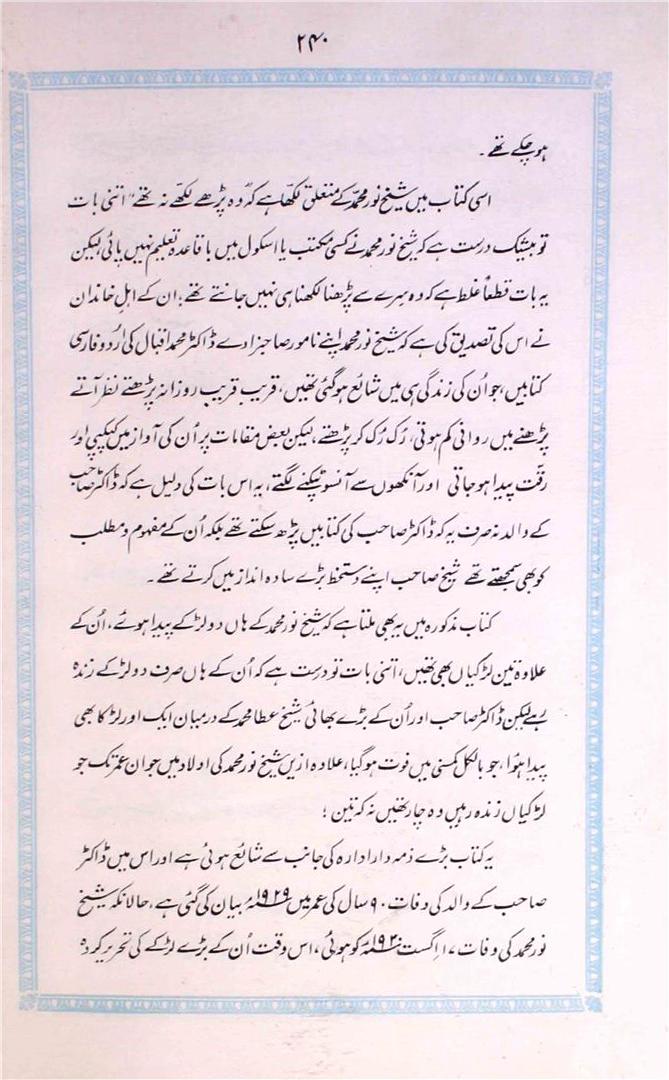 ۲۴۰
ہو چکے تھے ۔
اسی کتاب میں شیخ نور محمدؐ کے متعلق لکھا ہے کہ "وہ پڑھے لکھے نہ تھے" اتنی بات
تو بیشک درست ہے کہ شیخ نور محمد نے کسی مکتب یا اسکول میں باقاعدہ تعلیم نہیں پائی لیکن
یہ بات قطعاً غلط ہے کہ وہ سرے سے پڑھنا لکھنا ہی نہیں جانتے تھے؛ ان کے اہلِ خاندان
نے اس کی تصدیق کی ہے کہ شیخ نور محمد اپنے نامور صاحبزادے ڈاکٹر محمد اقبال کی اُردو فارسی
کتابیں، جو اُن کی زندگی ہی میں شائع ہو گئی تھیں، قریب قریب روزانہ پڑھتے نظر آتے
پڑھنے میں روانی کم ہوتی، رُک رُک کر پڑھتے، لیکن بعض مقامات پر اُن کی آواز میں کپکپی اور
رقّت پیدا ہو جاتی اور آنکھوں سے آنسو ٹپکنے لگتے، یہ اس بات کی دلیل ہے کہ ڈاکٹر صاحب
کے والد نہ صرف یہ کہ ڈاکٹر صاحب کی کتابیں پڑھ سکتے تھے بلکہ اُن کے مفہوم و مطلب
کو بھی سمجھتے تھے شیخ صاحب اپنے دستخط بڑے سادہ انداز میں کرتے تھے ۔
کتاب مذکورہ میں یہ بھی ملتا ہے کہ شیخ نور محمد کے ہاں دو لڑکے پیدا ہوئے، اُن کے
علاوہ تین لڑکیاں بھی تھیں، اتنی بات تو درست ہے کہ اُن کے ہاں صرف دو لڑکے زندہ
رہے لیکن ڈاکٹر صاحب اور اُن کے بڑے بھائی شیخ عطا محمد کے درمیان ایک اور لڑکا بھی
پیدا ہوا، جو بالکل کمسنی میں فوت ہو گیا، علاوہ ازیں شیخ نور محمد کی اولاد میں جوان عمر تک جو
لڑکیاں زندہ رہیں وہ چار تھیں نہ کہ تین ؛
یہ کتاب بڑے ذمہ دار ادارہ کی جانب سے شائع ہوئی ہے اور اس میں ڈاکٹر
صاحب کے والد کی وفات ۹۰ سال کی عمر میں ۱۹۲۹ء بیان کی گئی ہے، حالانکہ شیخ
نور محمد کی وفات ۱۷ اگست ۱۹۳۰ء کو ہوئی، اس وقت اُن کے بڑے لڑکے کی تحریر کردہ